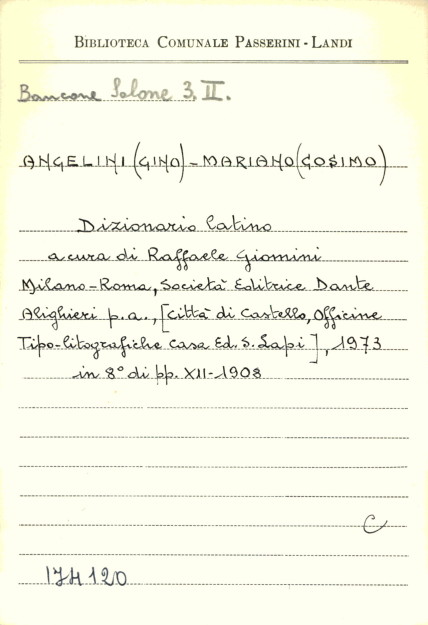 BIBLIOTECA COMUNALE PASSERINI - LANDI
Bancone Salone 3. II.
ANGELINI (GINO) - MARIANO (COSIMO)
Dizionario latino
a cura di Raffaele Giomini
Milano-Roma, Società Editrice Dante
Alighieri p.a., [Città di Castello, Officine
Tipo-litografiche Casa Ed. S. Lapi], 1973
in 8° di pp. XII-1908
C
174120